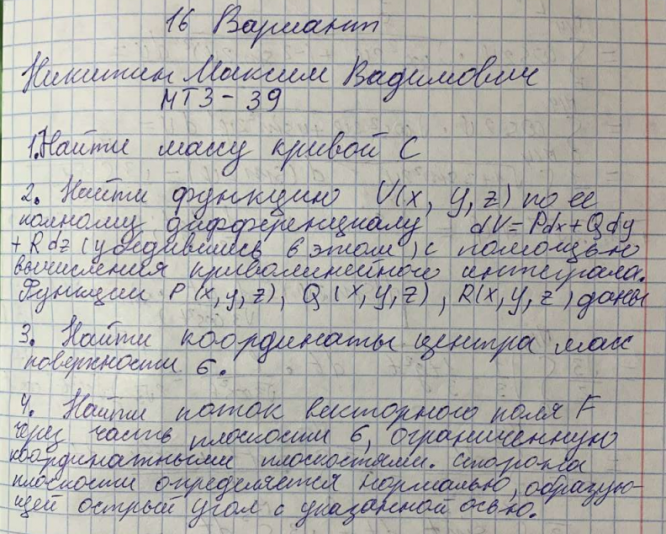 16 Вариант
Никитин Максим Вадимович
МТ3-39
1. Найти массу кривой С
2. Найти функцию U(x, y, z) по ее
полному дифференциалу dU=Pdx+Qdy
+Rdz (убедившись в этом) с помощью
вычисления криволинейного интеграла.
Функции P(x,y,z), Q(x,y,z), R(x,y,z) даны
3. Найти координаты центра масс
поверхности б.
4. Найти поток векторного поля F
через часть плоскости б, ограниченную
координатными плоскостями. Сторона
плоскости определяется нормалью, образую-
щей острый угол с указанной осью.